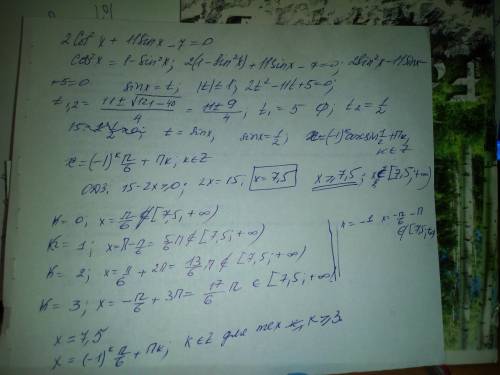 2cos²x + 11sinx - 7 = 0
cos²x = 1 - sin²x; 2(1-sin²x) + 11sinx - 7 = 0; 2sin²x - 11sinx
+5=0; sinx = t, |t| ≤ 1, 2t² - 11t + 5 = 0;
t₁,₂ = (11 ± √(121-40))/4 = (11 ± 9)/4, t₁ = 5 ∅; t₂ = 1/2
t = sinx, sinx = 1/2; x = (-1)ᵏ arcsin 1/2 + πk, k ∈ Z
x = (-1)ᵏ π/6 + πk, k ∈ Z
ОДЗ: 15 - 2x ≥ 0; 2x = 15; x = 7,5 x ≥ 7,5; x ∈ [7,5; +∞)
k = 0, x = π/6 ∉ [7,5; +∞)
k = 1; x = π - π/6 = 5/6 π ∉ [7,5; +∞)
k = 2; x = π/6 + 2π = 13/6 π ∉ [7,5; +∞)
k = 3; x = -π/6 + 3π = 17/6 π ∈ [7,5; +∞)
x = -π/6 - π
∉ [7,5; +∞)
x = 7,5
x = (-1)ᵏ π/6 + πk; k ∈ Z для тех k ≥ 3.